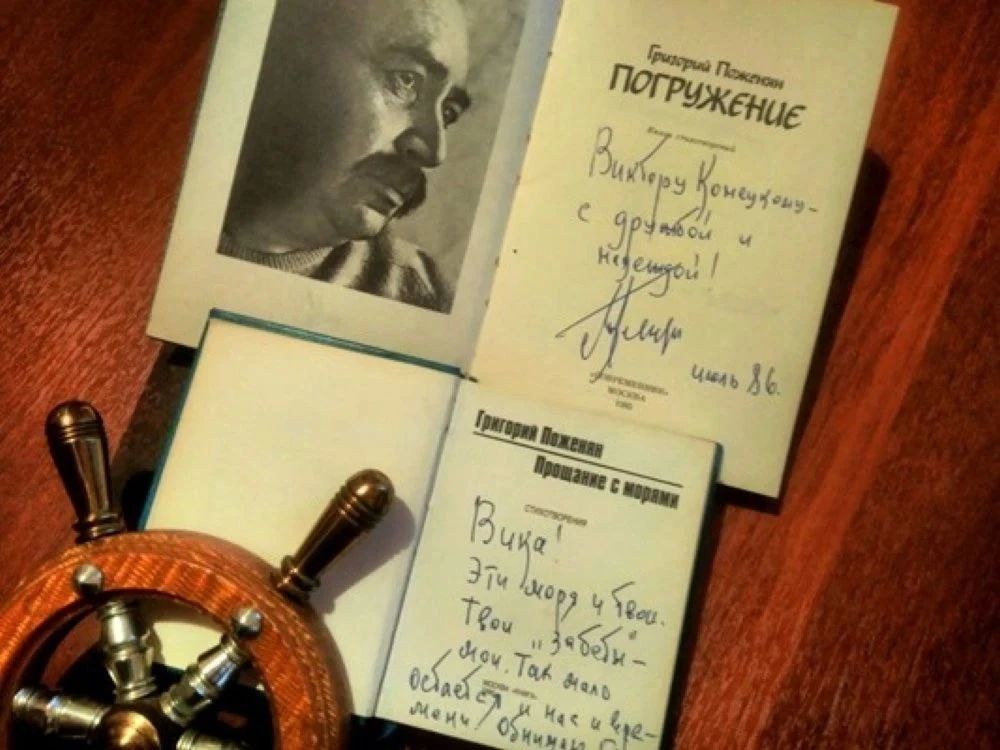 Григорий Поженян
ПОГРУЖЕНИЕ
Книга стихотворений
Виктору Конецкому -
с дружбой и
надеждой!
июль 86.
«СОВРЕМЕННИК»
МОСКВА
Григорий Поженян
Прощание с морями
СТИХОТВОРЕНИЯ
Вика!
Эти моря и твои.
Твои и
мои. Так мало
МОСКВА «КНИГА»
остаётся и нас и вре-
мени. Обнимаю